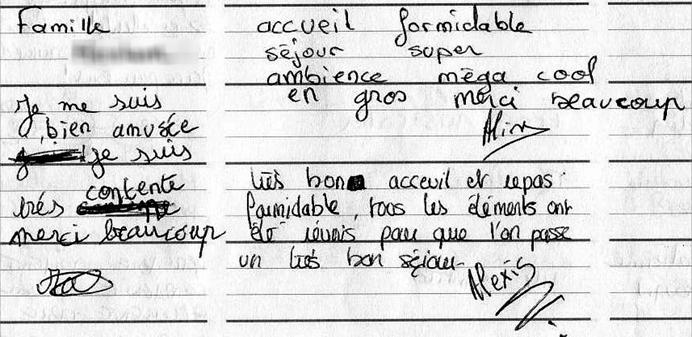 Famille
accueil formidable
séjour super
ambience mèga cool
en gros merci beaucoup
Je me suis
bien amusée
je suis
très contente
merci beaucoup
très bon acceuil et repas
formidable, tous les éléments ont
été réunis pour que l'on passe
un très bon séjour
Alexis